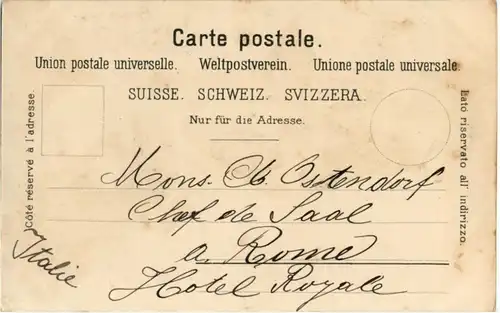 Carte postale.
Union postale universelle. Weltpostverein. Unione postale universale.
SUISSE. SCHWEIZ. SVIZZERA.
Nur für die Adresse.
Côté réservé à l'adresse.
Lato riservato all' indirizzo.
Mons. Ostendorf
Chef de Saal
a Rome
Hotel Royale
Italie